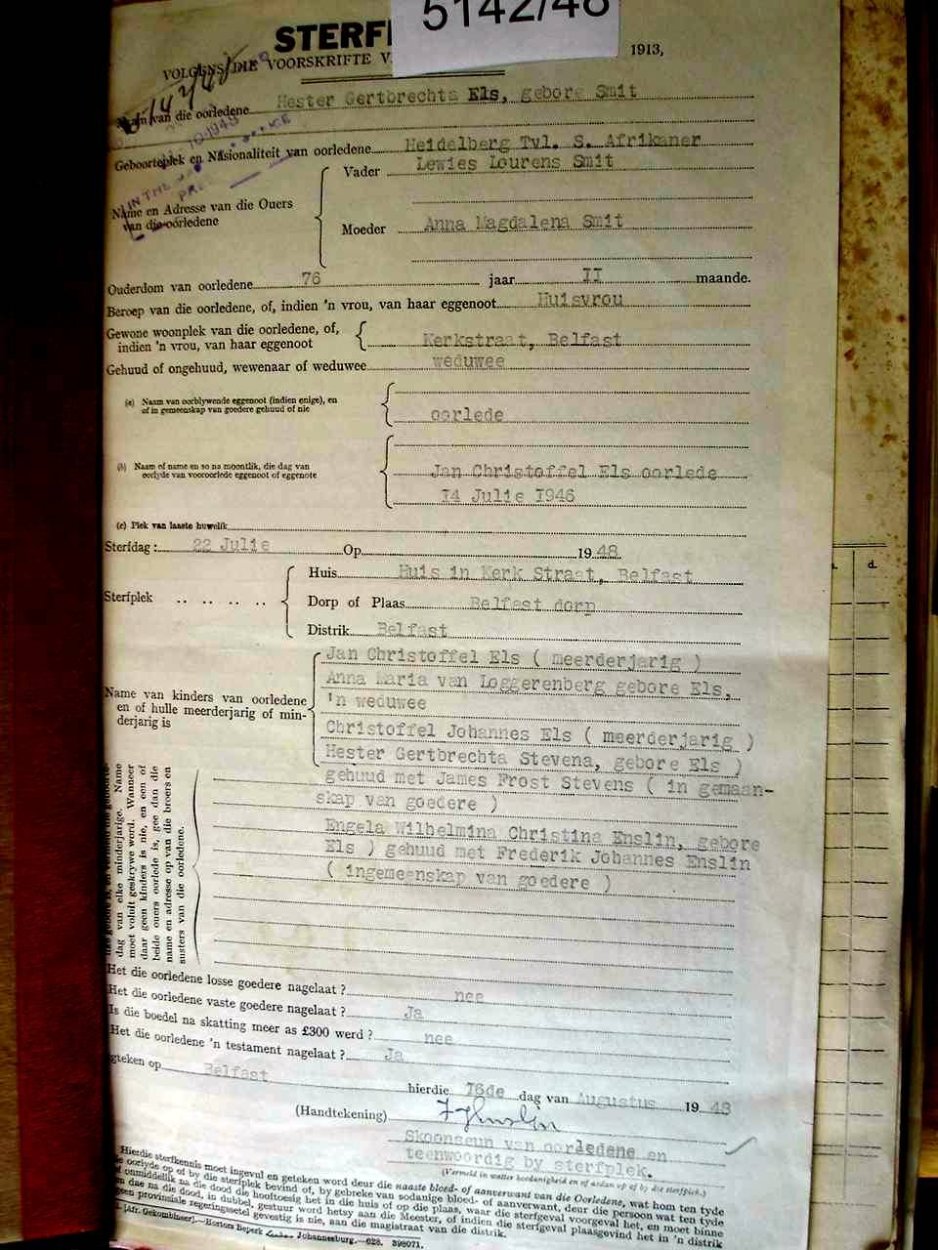 5142/48
STERF
VOLGENS DIE VOORSKRIFTE V 1913,
Naam van die oorledene Hester Gertbrechta Els, gebore Smit
IN THE
Geboorteplek en Nasionaliteit van oorledene Heidelberg Tvl. S. Afrikaner
Name en Adresse van die Ouers van die oorledene
Vader Lewies Lourens Smit
Moeder Anna Magdalena Smit
Ouderdom van oorledene 76 jaar II maande.
Beroep van die oorledene, of, indien 'n vrou, van haar eggenoot Huisvrou
Gewone woonplek van die oorledene, of,
indien 'n vrou, van haar eggenoot Kerkstraat, Belfast
Gehuud of ongehuud, wewenaar of weduwee weduwee
(a) Naam van oorblywende eggenoot (indien enige), en
of in gemeenskap van goedere gehuud of nie oorlede
(b) Naam of name en so na moontlik, die dag van
oorlyde van vooroorlede eggenoot of eggenote Jan Christoffel Els oorlede
I4 Julie I946
(c) Plek van laaste huwelik
Sterfdag: 22 Julie Op 19 48
Sterfplek
Huis Huis in Kerk Straat, Belfast
Dorp of Plaas Belfast dorp
Distrik Belfast
Name van kinders van oorledene
en of hulle meerderjarig of min-
derjarig is
Jan Christoffel Els ( meerderjarig )
Anna Maria van Loggerenberg gebore Els,
'n weduwee
Christoffel Johannes Els ( meerderjarig )
Hester Gertbrechta Stevena, gebore Els )
gehuud met James Frost Stevens ( in gemaan-
skap van goedere )
Engela Wilhelmina Christina Enslin, gebore
Els ) gehuud met Frederik Johannes Enslin
( ingemeenskap van goedere )
dag van elke minderjarige. Name
moet voluit geskrywe word. Wanneer
daar geen kinders is nie, en een of
beide ouers oorlede is, gee dan die
name en adresse op van die broers en
susters van die oorledene.
Het die oorledene losse goedere nagelaat? nee
Het die oorledene vaste goedere nagelaat? Ja
Is die boedel na skatting meer as £300 werd? nee
Het die oorledene 'n testament nagelaat? Ja
gteken op Belfast hierdie I6de dag van Augustus 19 48
(Handtekening) F J Enslin
Skoonseun van oorledene en
teenwoordig by sterfplek.
(Vermeld in watter hoedanigheid en of aldan op of by die sterfplek.)
Hierdie sterfkennis moet ingevul en geteken word deur die naaste bloed- of aanverwant van die Oorledene, wat hom ten tyde
oorlyde op of by die sterfplek bevind of, by gebreke van sodanige bloed- of aanverwant, deur die persoon wat ten tyde
onmiddellik na die dood die hooftoesig het in die huis of op die plaas, waar die sterfgeval voorgeval het, en moet binne
dae na die dood, in dubbel, gestuur word hetsy aan die Meester, of indien die sterfgeval plaasgevind het in 'n distrik
geen provinsiale regeringsetel gevestig is nie, aan die magistraat van die distrik.
(Afr. Gekombineer).—Hortors Beperk Johannesburg.—628. 398071.
d.